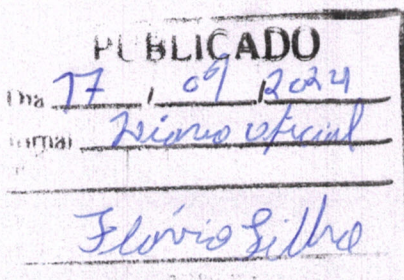 PUBLICADO
Dia 17 / 09 / 2024
Jornal Diário oficial
Flávio Silho